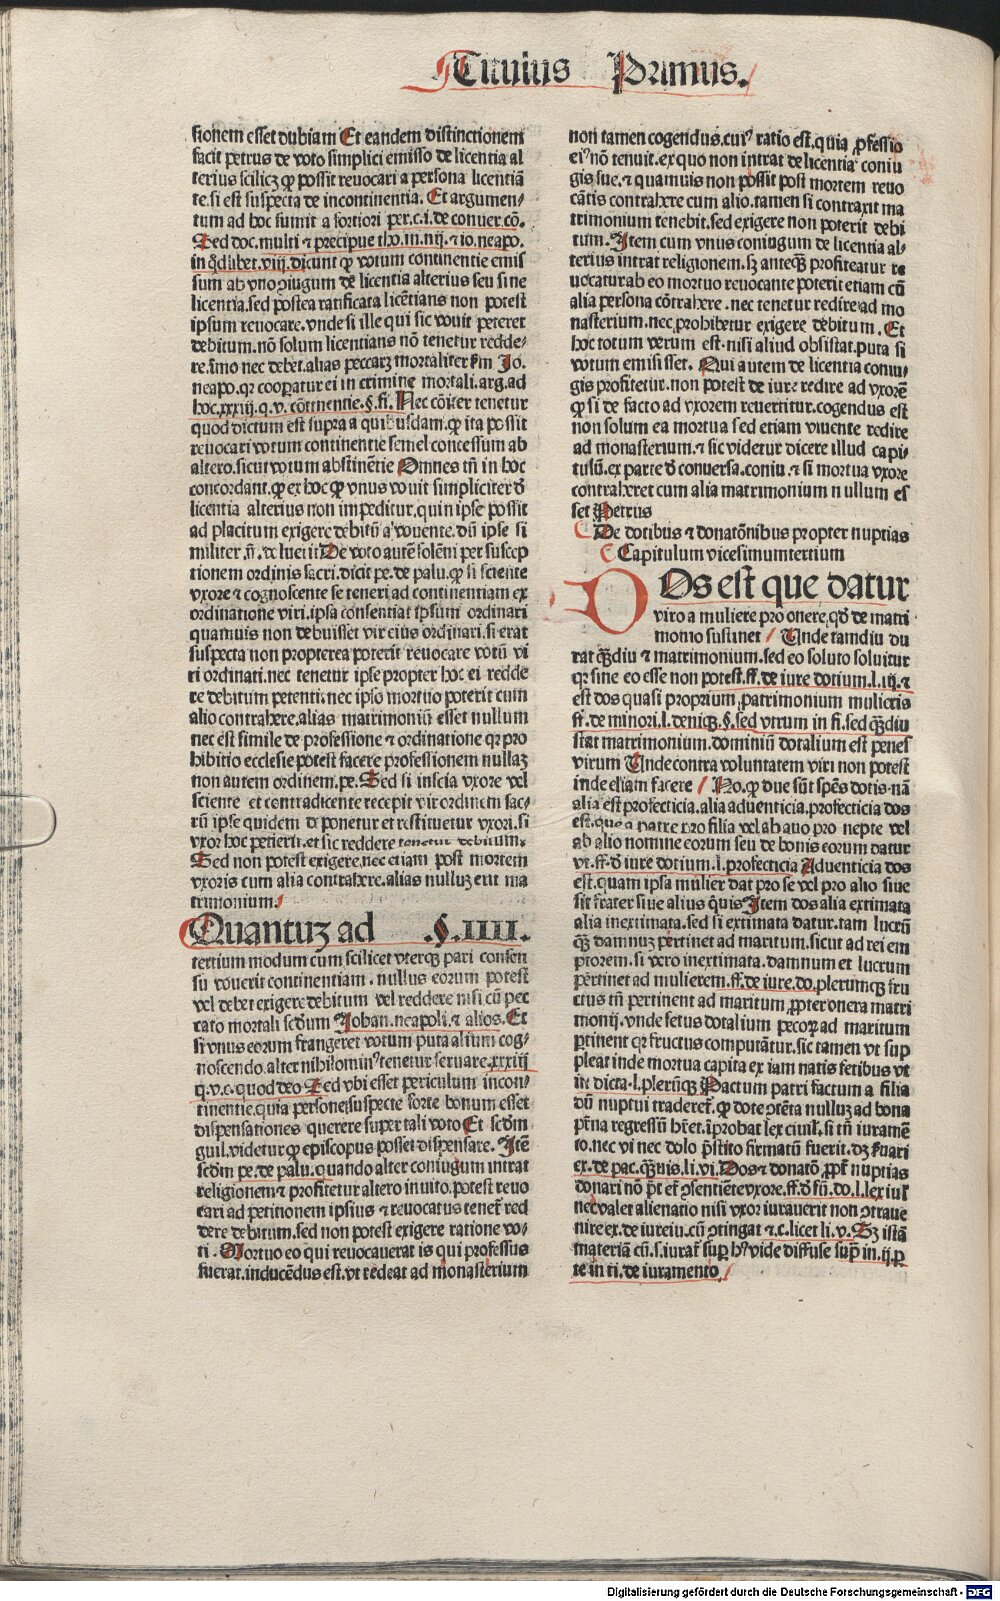 Titulus Primus.
sionem esset dubiam Et eandem distinctionem
facit petrus de voto simplici emisso de licentia al
terius scilicz ꝙ possit reuocari a persona licentiā
te.si est suspecta de incontinentia. Et argumen⸗
tum ad hoc sumit a fortiori per.c.i.de conuer.cō.
Sed doc.multi ⁊ precipue tho.in.iiij.⁊ io.neapo.
in q̄dlibet.viij.dicunt ꝙ votum continentie emis
sum ab vno ꝯiugum de licentia alterius seu sine
licentia.sed postea ratificata licētians non potest
ipsum reuocare.vnde si ille qui sic vouit peteret
debitum.nō solum licentians nō tenetur redde⸗
re.īmo nec debet.alias peccarꝫ mortaliter ẜm Jo.
neapo.qꝛ cooꝑatur ei in crimine mortali.arg.ad
hoc.xxxiij.q.v.cōtinentie.§.fi. Nec cōiter tenetur
quod dictum est supra a quibusdam.ꝙ ita possit
reuocari votum continentie semel concessum ab
altero.sicut votum abstinētie Omnes tn̄ in hoc
concordant.ꝙ ex hoc ꝙ vnus vouit simpliciter d̄
licentia alterius non impeditur.quin ipse possit
ad placitum exigere debitū a vouente.dū ipse si
militer n̄.de luerit De voto autē solēni per suscep
tionem ordinis sacri.dicit pe.de palu.ꝙ si sciente
vxore ⁊ cognoscente se teneri ad continentiam ex
ordinatione viri.ipsa consentiat ipsum ordinari
quamuis non debuisset vir eius ordinari.si erat
suspecta non propterea poterit reuocare votū vi
ri ordinati.nec tenetur ipse propter hoc ei redde
re debitum petenti.nec ipso mortuo poterit cum
alio contrahere.alias matrimoniū esset nullum
nec est simile de professione ⁊ ordinatione qꝛ pro
hibitio ecclesie potest facere professionem nullaꝫ
non autem ordinem.pe. Sed si inscia vxore vel
sciente et contradicente recepit vir ordinem sac⸗
rū ipse quidem deponetur et restituetur vxori.si
vxor hoc petierit.et sic reddere tenetur debitum.
Sed non potest exigere.nec etiam post mortem
vxoris cum alia contrahere.alias nulluꝫ erit ma
trimonium.
Quantuꝫ ad .§.IIII.
tertium modum cum scilicet vterqꝫ pari consen
su vouerit continentiam.nullus eorum potest
vel debet exigere debitum vel reddere nisi cū pec
cato mortali scd̄um Johan.neapoli.⁊ alios. Et
si vnus eorum frangeret votum puta alium cog⸗
noscendo.alter nihilomin⁹ tenetur seruare.xxxiij
q.v.c.quod deo Sed vbi esset periculum incon⸗
tinentie.quia persone suspecte forte bonum esset
dispensationes querere super tali voto Et scd̄m
guil.videtur ꝙ episcopus posset dispensare. Itē
scd̄m pe.de palu.quando alter coniugum intrat
religionem ⁊ profitetur altero inuito.potest reuo
cari ad petitionem ipsius ⁊ reuocatus tenet̄ red
dere debitum.sed non potest exigere ratione vo⸗
ti. Mortuo eo qui reuocauerat is qui professus
fuerat.inducēdus est.vt redeat ad monasterium
non tamen cogendus.cui⁹ ratio est.quia ꝓfessio
ei⁹ nō tenuit.ex quo non intrat de licentia coniu
gis sue.⁊ quamuis non possit post mortem reuo
cātis contrahere cum alio.tamen si contraxit ma
trimonium tenebit.sed exigere non poterit debi
tum. Item cum vnus coniugum de licentia al⸗
terius intrat religionem.sꝫ anteqꝫ̄ profiteatur re
uocatur ab eo mortuo reuocante poterit etiam cū
alia persona cōtrahere.nec tenetur redire ad mo
nasterium.nec prohibetur exigere debitum. Et
hoc totum verum est.nisi aliud obsistat.puta si
votum emisisset. Qui autem de licentia coniu⸗
gis profitetur.non potest de iure redire ad vxorē
ꝙ si de facto ad vxorem reuertitur.cogendus est
non solum ea mortua sed etiam viuente redire
ad monasterium.⁊ sic videtur dicere illud capi⸗
tulū.ex parte d̄ conuersa.coniu.⁊ si mortua vxore
contraheret cum alia matrimonium nullum es
set Petrus
De dotibus ⁊ donatōnibus propter nuptias
Capitulum vicesimumtertium
DOs est que datur
viro a muliere pro onere.qd̄ de matri
monio sustinet Unde tamdiu du
rat qꝫ̄diu ⁊ matrimonium.sed eo soluto soluitur
qꝛ sine eo esse non potest.ff.de iure dotium.l.iij.⁊
est dos quasi proprium patrimonium mulieris
ff.de minori.l.deniqꝫ.§.sed vtrum in fi.sed qꝫ̄diu
stat matrimonium.dominiū dotalium est penes
virum Unde contra voluntatem viri non potest
inde eliam facere No.ꝙ due sūt spēs dotis.nā
alia est profecticia.alia aduenticia.profecticia dos
est.que a patre pro filia vel ab auo pro nepte vel
ab alio nomine eorum seu de bonis eorum datur
vt.ff.d̄ iure dotium.l.profecticia Aduenticia dos
est.quam ipsa mulier dat pro se vel pro alio siue
sit frater siue alius q̄uis Item dos alia extimata
alia inextimata.sed si extimata datur.tam lucrū
qꝫ̄ damnuꝫ pertinet ad maritum.sicut ad rei em
ptorem.si vero inextimata.damnum et lucrum
pertinet ad mulierem.ff.de iure.do.plerumcqꝫ fru
ctus tn̄ pertinent ad maritum ꝓpter onera matri
monij.vnde fetus dotalium pecoꝝ ad maritum
ꝑtinent qꝛ fructus computātur.sic tamen vt sup
pleat inde mortua capita ex iam natis fetibus vt
in dicta.l.plerūqꝫ Pactum patri factum a filia
dū nuptui traderet̄.ꝙ dote ꝯtēta nulluꝫ ad bona
pr̄na regressū hr̄et.īprobat lex ciuil̄.si tn̄ iuramē
to.nec vi nec dolo p̄stito firmatū fuerit.dꝫ ẜuari
ex.de pac.qꝫ̄uis.li.vi. Dos ⁊ donatō ꝓpt̄ nuptias
donari nō p̄t et̄ ꝯsentiēte vxore.ff.d̄ fū.do.l.lex iul̄
nec valet alienatio nisi vxor iurauerit non ꝯtraue
nire ex.de iureiu.cū ꝯtingat ⁊.c.licet li.v. Sꝫ istā
materiā cū.s.iurat̄ suꝑ h⁹ vide diffuse supͣ in.ij.ꝑ
te in ti.de iuramento
Digitalisierung gefördert durch die Deutsche Forschungsgemeinschaft - DFG